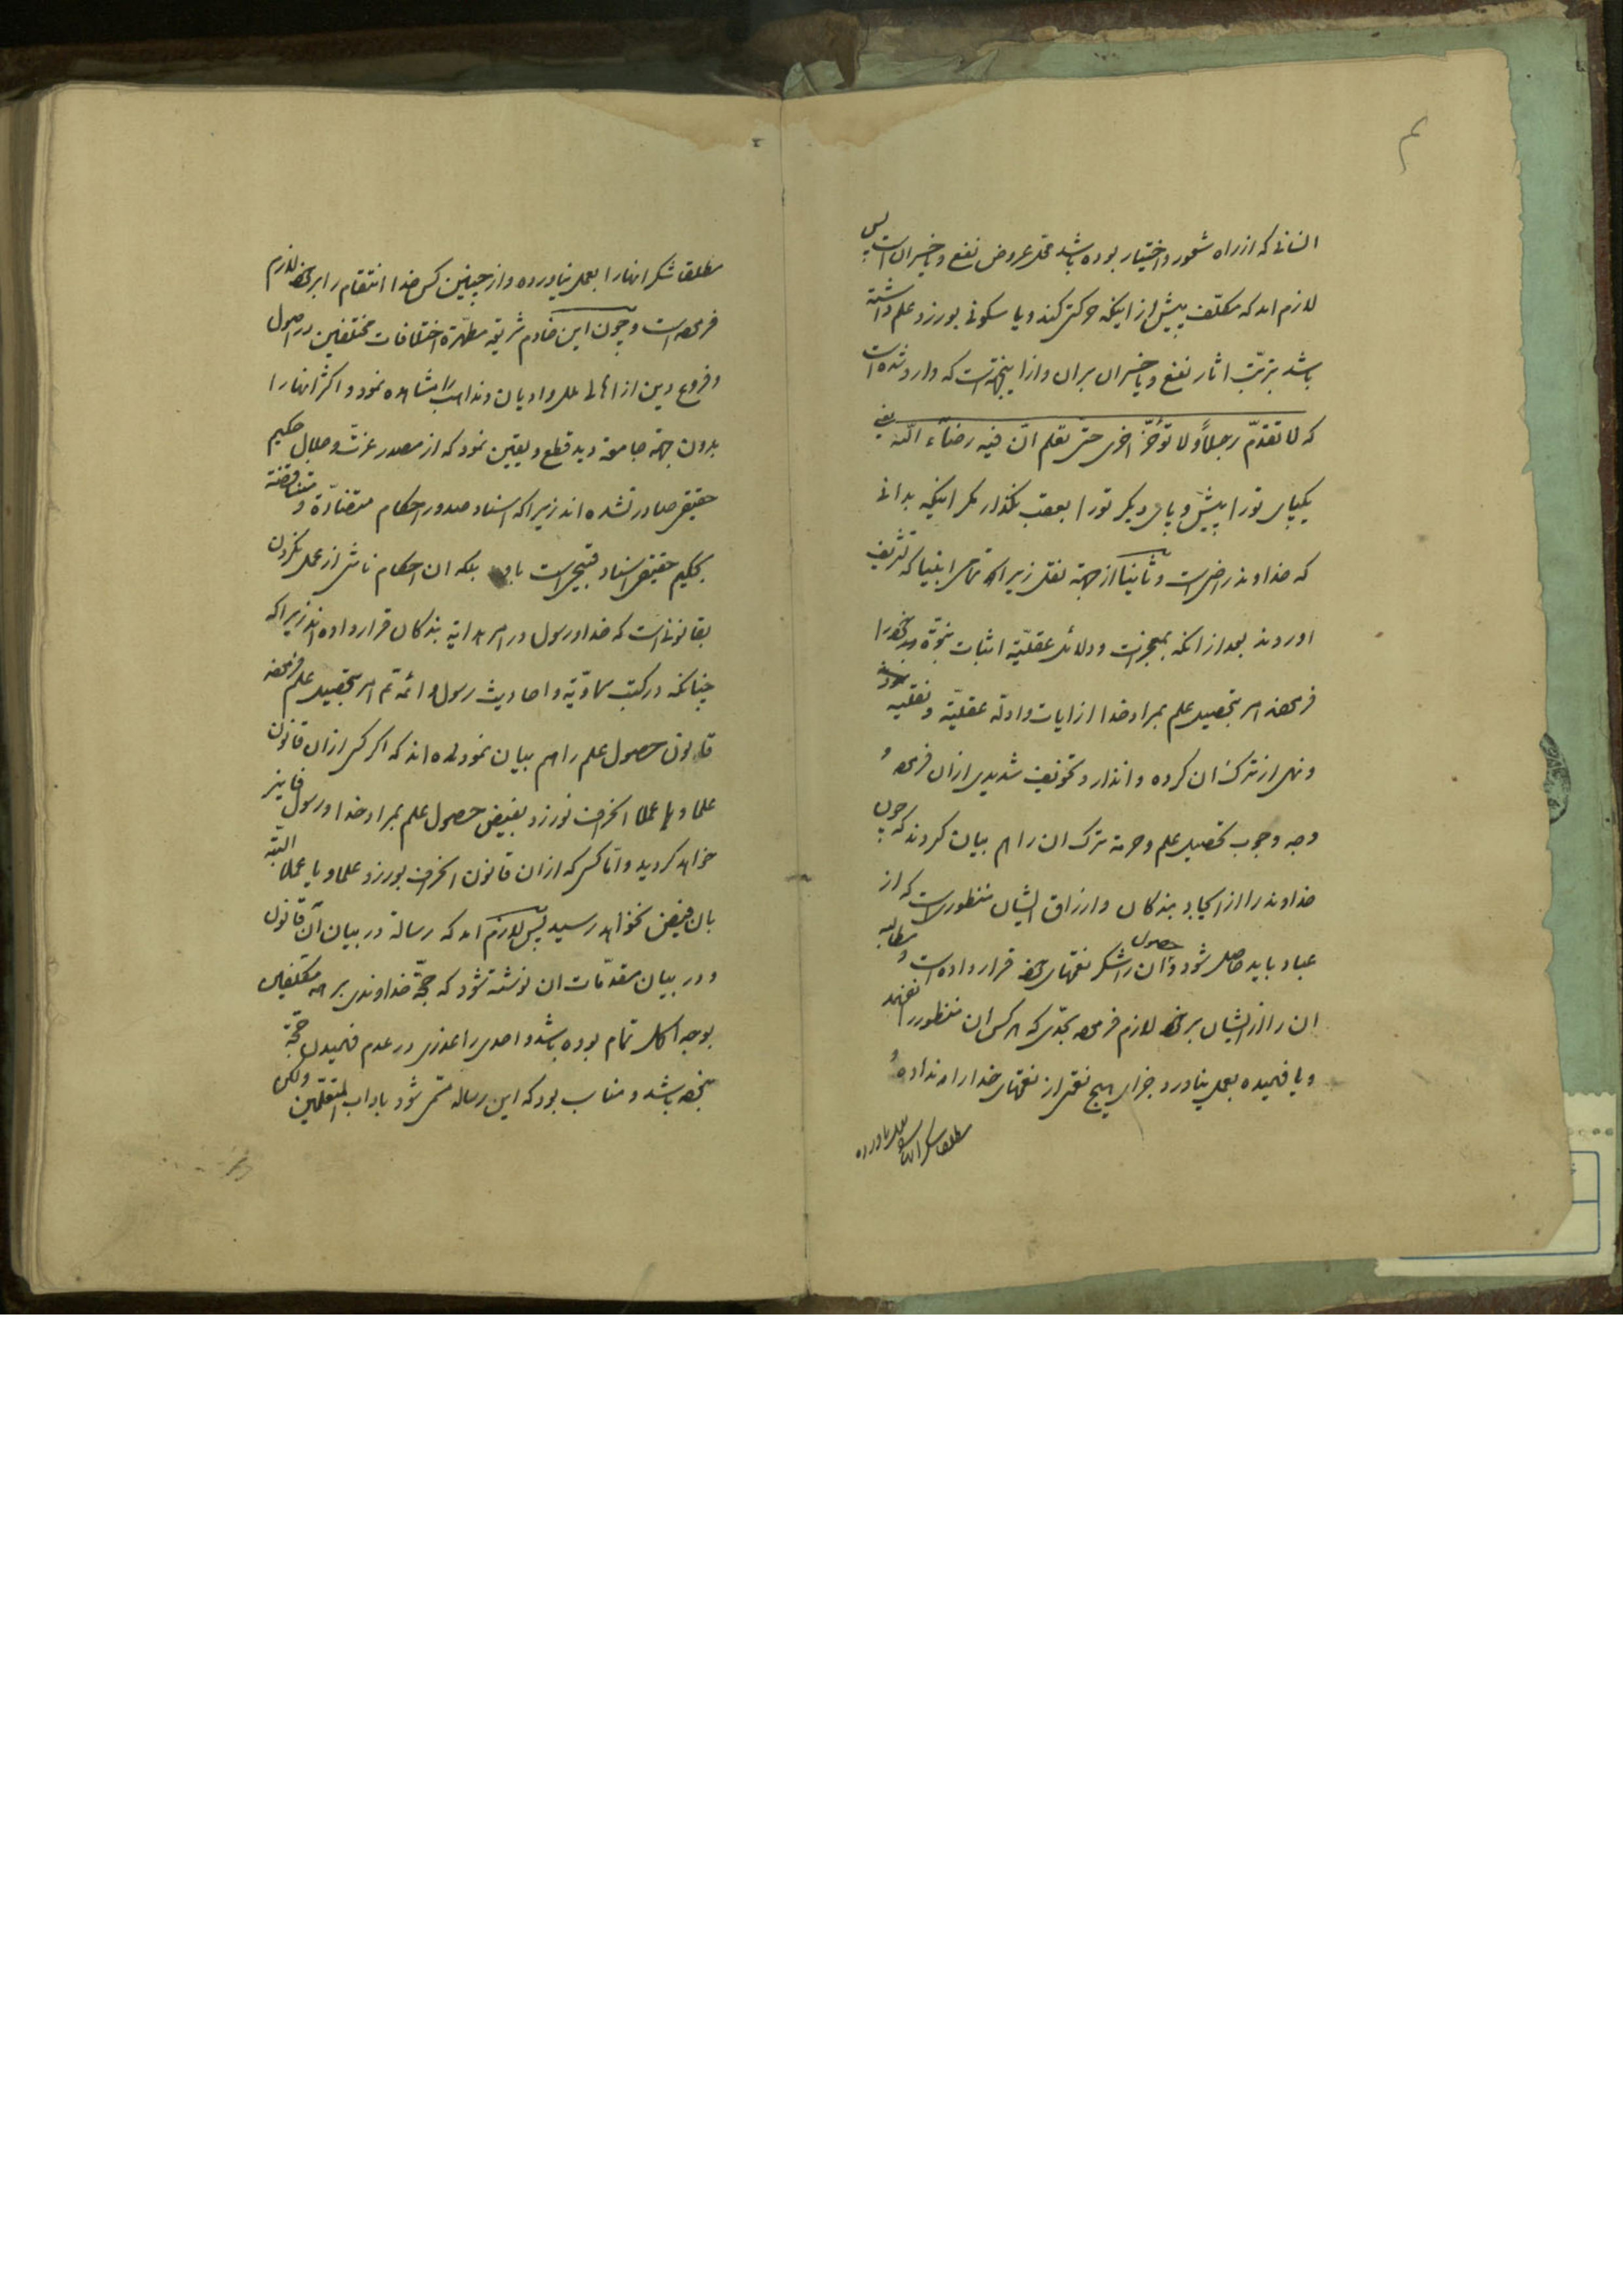 انسانی که از راه شعور و اختیار بوده باشد محل عروض نفع و یا خسران است پس
لازم امد که مکلّف پیش از اینکه حرکتی کند و یا سکونی بورزد علم داشته
باشد بترتّب اثار نفع و یا خسران بران و از اینجهتست که وارد شده است
که لا تقدّم رجلاً و لا تؤخّر اخری حتی تعلم انّ فیه رضاء الله یعنی
یکپای تورا پیش و پای دیگر تورا بعقب نگذار مگر اینکه بدانی
که خداوند راضیست و ثانیا از جهة نقل زیرا که تمامی انبیا که تشریف
اوردند بعد از انکه بمعجزات و دلائل عقلیّه اثبات نبوّة خودرا
فرموده امر بتحصیل علم بمراد خدا از ایات و ادلّه عقلیّه و نقلیه نموده
و نهی از ترک ان کرده و انذار و تخویف شدیدی ازان فرموده
وجه وجوب تحصیل علم و حرمة ترک ان را هم بیان کردند که چون
خداوند را از ایجاد بندگان و ارزاق ایشان منظوریست که از
عباد باید حاصل شود و حصول آن را شکر نعمتهای خود قرار داده است و مطالبه
ان را از ایشان بر خود لازم فرموده بحدّی که هر کس ان منظور را نفهمد
و یا فهمیده بعمل نیاورد جزای هیچ نعمتی از نعمتهای خدا را نداده
مطلقا شکر انها را بعمل نیاورده
مطلقا شکر انها را بعمل نیاورده و از چنین کس خدا انتقام را بر خود لازم
فرموده است و چون این خادم شریعه مطهّرة اختلافات مختلفین در اصول
و فروع دین از اهالی ملل و ادیان و مذاهب را مشاهده نمود و اکثر انها را
بدون جهة جامعه دید قطع و یقین نمود که از مصدر عزّت و جلال حکیم
حقیقی صادر نشده اند زیرا که اسناد صدور احکام متضادّة و متناقضة
بحکیم حقیقی اسناد قبیحیست باو بلکه ان احکام ناشی از عمل نکردن
بقانونی است که خدا و رسول در امر هدایة بندگان قرار داده اند زیرا که
چنانکه در کتب سماویّه و احادیث رسول و ائمّه تم امر بتحصیل علم فرموده
قانون حصول علم را هم بیان نموده اند که اگر کسی ازان قانون
علما و یا عملا انحراف نورزد بفیض حصول علم بمراد خدا و رسول فایز
خواهد گردید و امّا کسی که ازان قانون انحراف بورزد علما و یا عملا البتّه
بان فیض نخواهد رسید پس لازم امد که رسالة در بیان آن قانون
و در بیان مقدّمات ان نوشته شود که حجّة خداوندی بر همه مکلّفین
بوجه اکمل تمام بوده باشد و احدی را عذری در عدم فهمیدن حجّة
نبوده باشد و مناسب بود که این رساله مسمّی شود باداب المتعلّمین ولکن